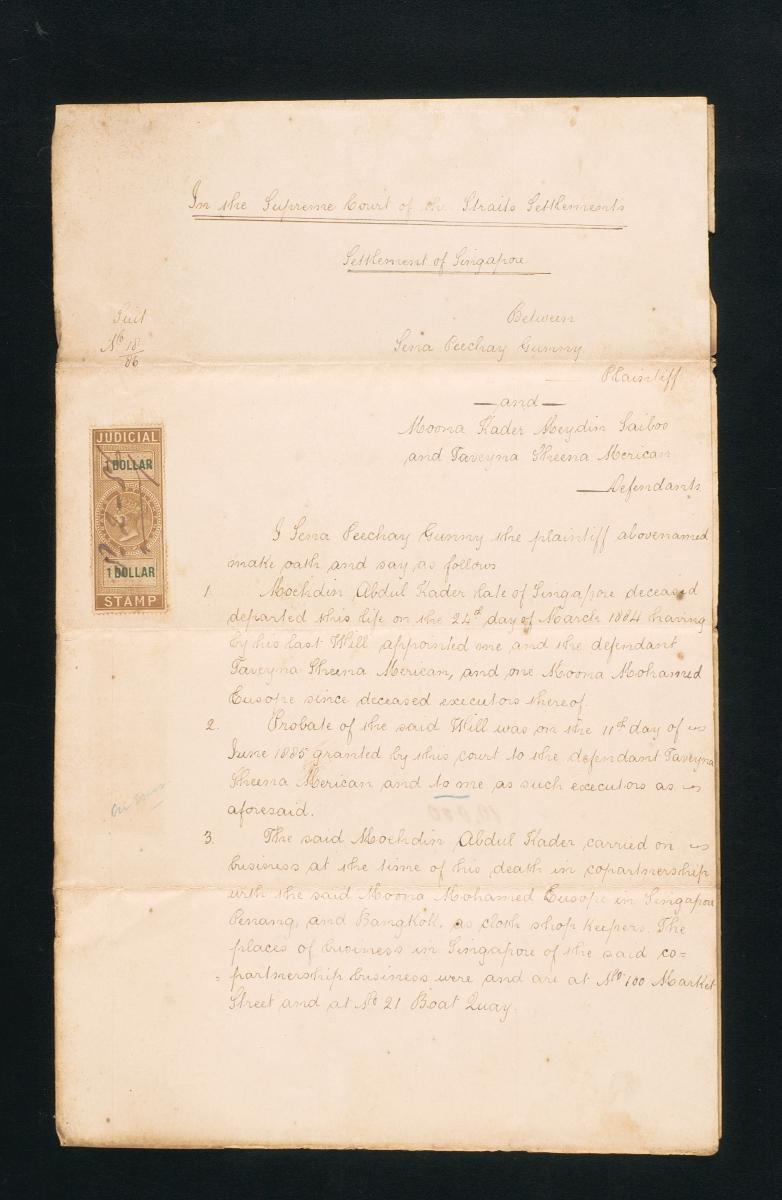 In the Supreme Court of the Straits Settlements
Settlement of Singapore
Suit
No 18/86
Between
Sena Peechay Gunny
Plaintiff
—and—
Moona Kader Meydin Saiboo
and Taveyna Sheena Merican
—Defendants
JUDICIAL
1 DOLLAR
1 DOLLAR
STAMP
I Sena Peechay Gunny the plaintiff abovenamed
make oath and say as follows
1. Moehdin Abdul Kader late of Singapore deceased
departed this life on the 24th day of March 1884 having
by his last Will appointed me and the defendant
Taveyna Sheena Merican, and one Moona Mohamed
Eusope since deceased executors thereof.
2. Probate of the said Will was on the 11th day of
June 1885 granted by this court to the defendant Taveyna
Sheena Merican and to me as such executors as
aforesaid.
3. The said Moehdin Abdul Kader carried on
business at the time of his death in copartnership
with the said Moona Mohamed Eusope in Singapore
Penang, and Bangkok, as cloth shop keepers. The
places of business in Singapore of the said co=
=partnership business were and are at No 100 Market
Street and at No 21 Boat Quay.